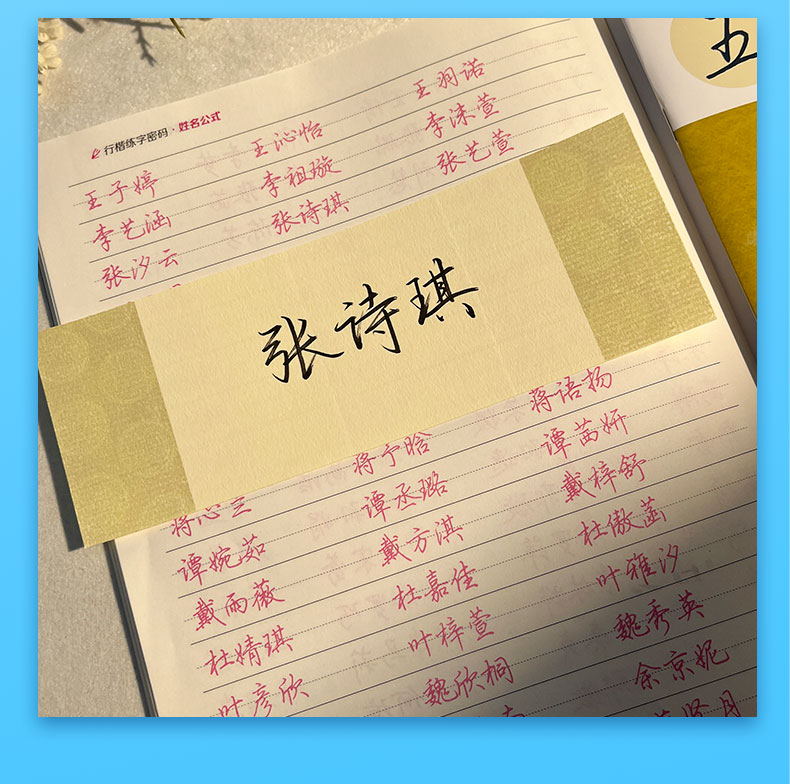 行楷练字密码·姓名公式
王子婷 王沁怡 王羽诺
李艺涵 李祖璇 李沫萱
张汐云 张诗琪 张艺萱
张诗琪
蒋心兰 蒋予晗 蒋语扬
谭婉茹 谭丞璐 谭茜妍
戴雨薇 戴方淇 戴梓舒
杜婧琪 杜嘉佳 杜傲菡
叶彦欣 叶梓萱 叶雅汐
魏欣桐 魏秀英
余京妮